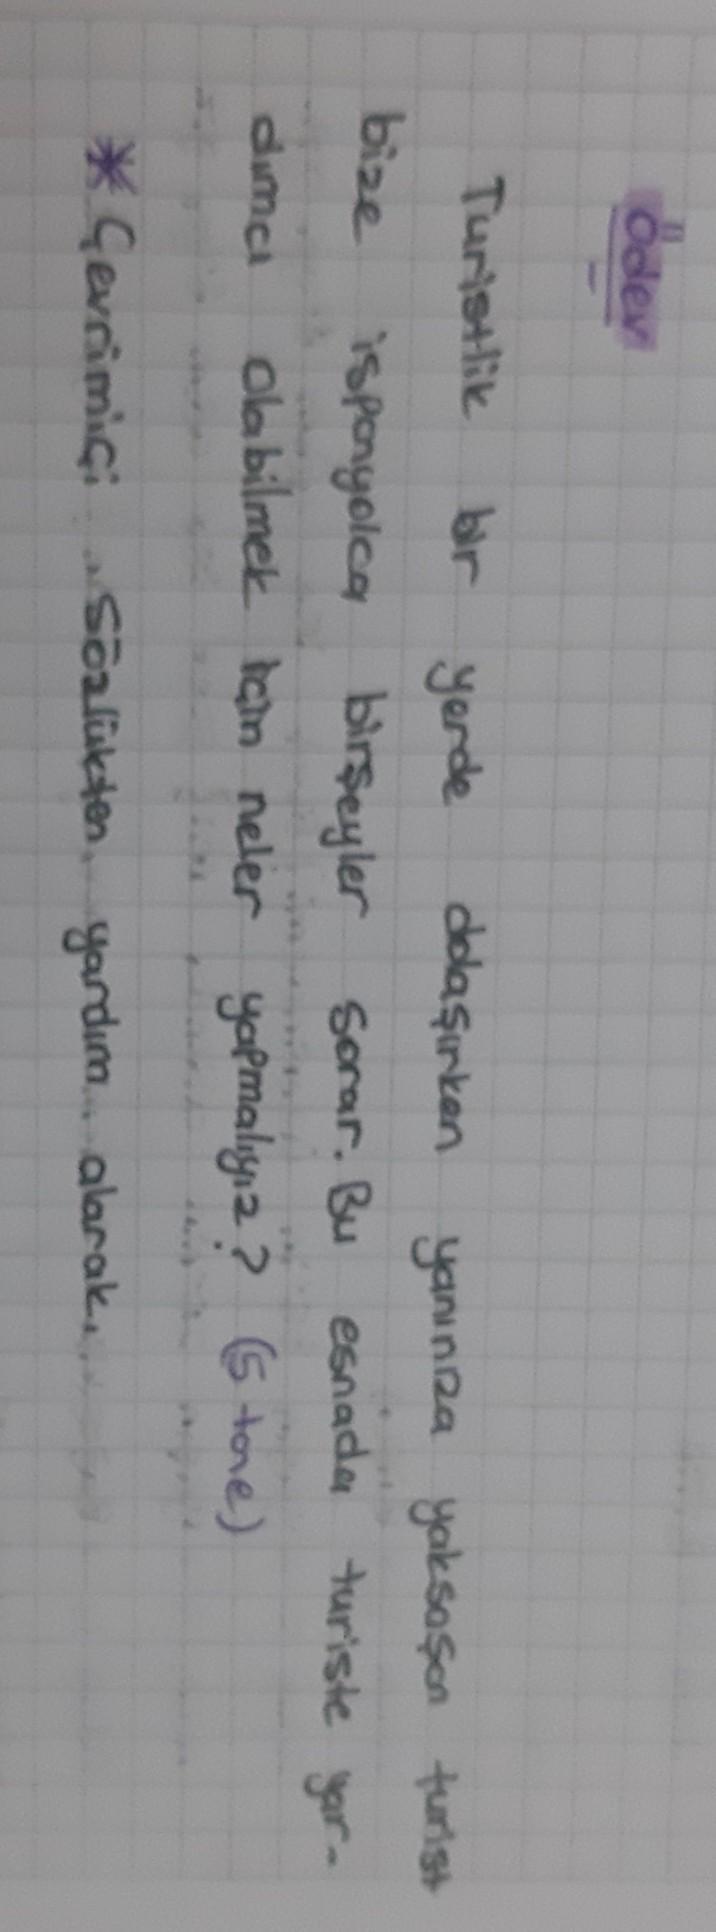 ödev
Turistlik bir yerde dolaşırken yanınıza yaksaşan turist
bize ispanyolca birşeyler sorar. Bu esnada turiste yar-
dımcı olabilmek için neler yapmalıyız? (5 tane)
* Çevrimiçi sözlükten yardım alarak.